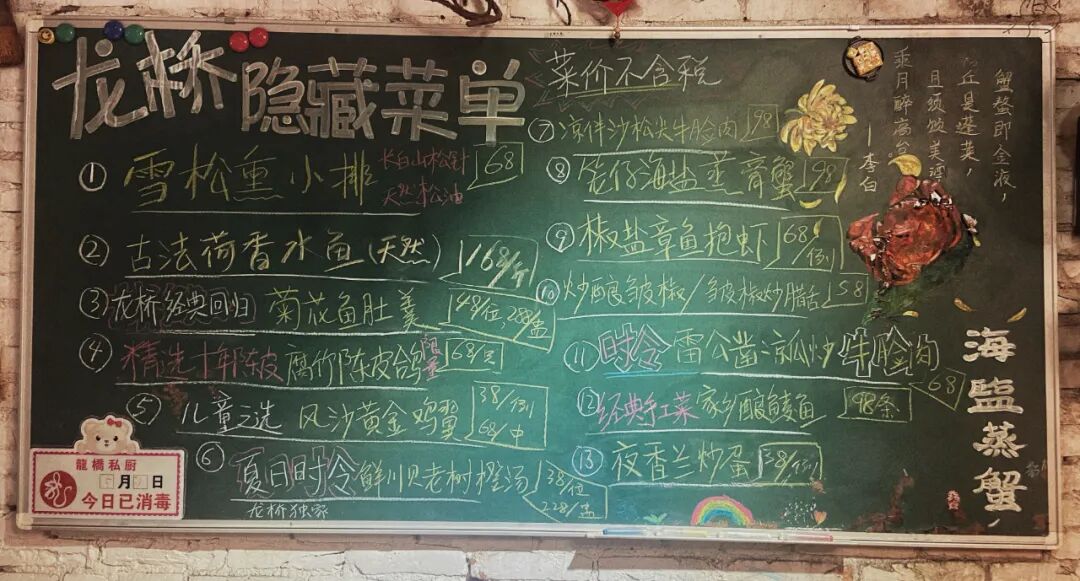 龙桥隐藏菜单
① 雪松熏小排 长白山松针 天然松油 68
② 古法荷香水鱼(天然) 168/斤
③ 龙桥经典回归 菊花鱼肚羹 48/位,288/盅
④ 精选十年陈皮 腐竹陈皮鸽 限量 68/只
⑤ 儿童之选 风沙黄金鸡翼 38/例 68/中
⑥ 夏日时令 鲜川贝老树橙汤 38/位 228/盅
龙桥独家
菜价不含税
⑦ 凉伴沙松尖牛脸肉 98
⑧ 笼仔海盐蒸膏蟹 98
⑨ 椒盐章鱼抱虾 68/例
⑩ 炒酿皱椒/皱椒炒腊舌 58
⑪ 时令 雷公凿凉瓜炒牛脸肉 68
⑫ 经典手工菜 家乡酿鲮鱼 98条
⑬ 夜香兰炒蛋 38/例
蟹螯即金液,
丘是蓬莱,
且须饮美酒
乘月醉高台。
—李白
海盐蒸蟹,
龍橋私厨
月 日
今日已消毒